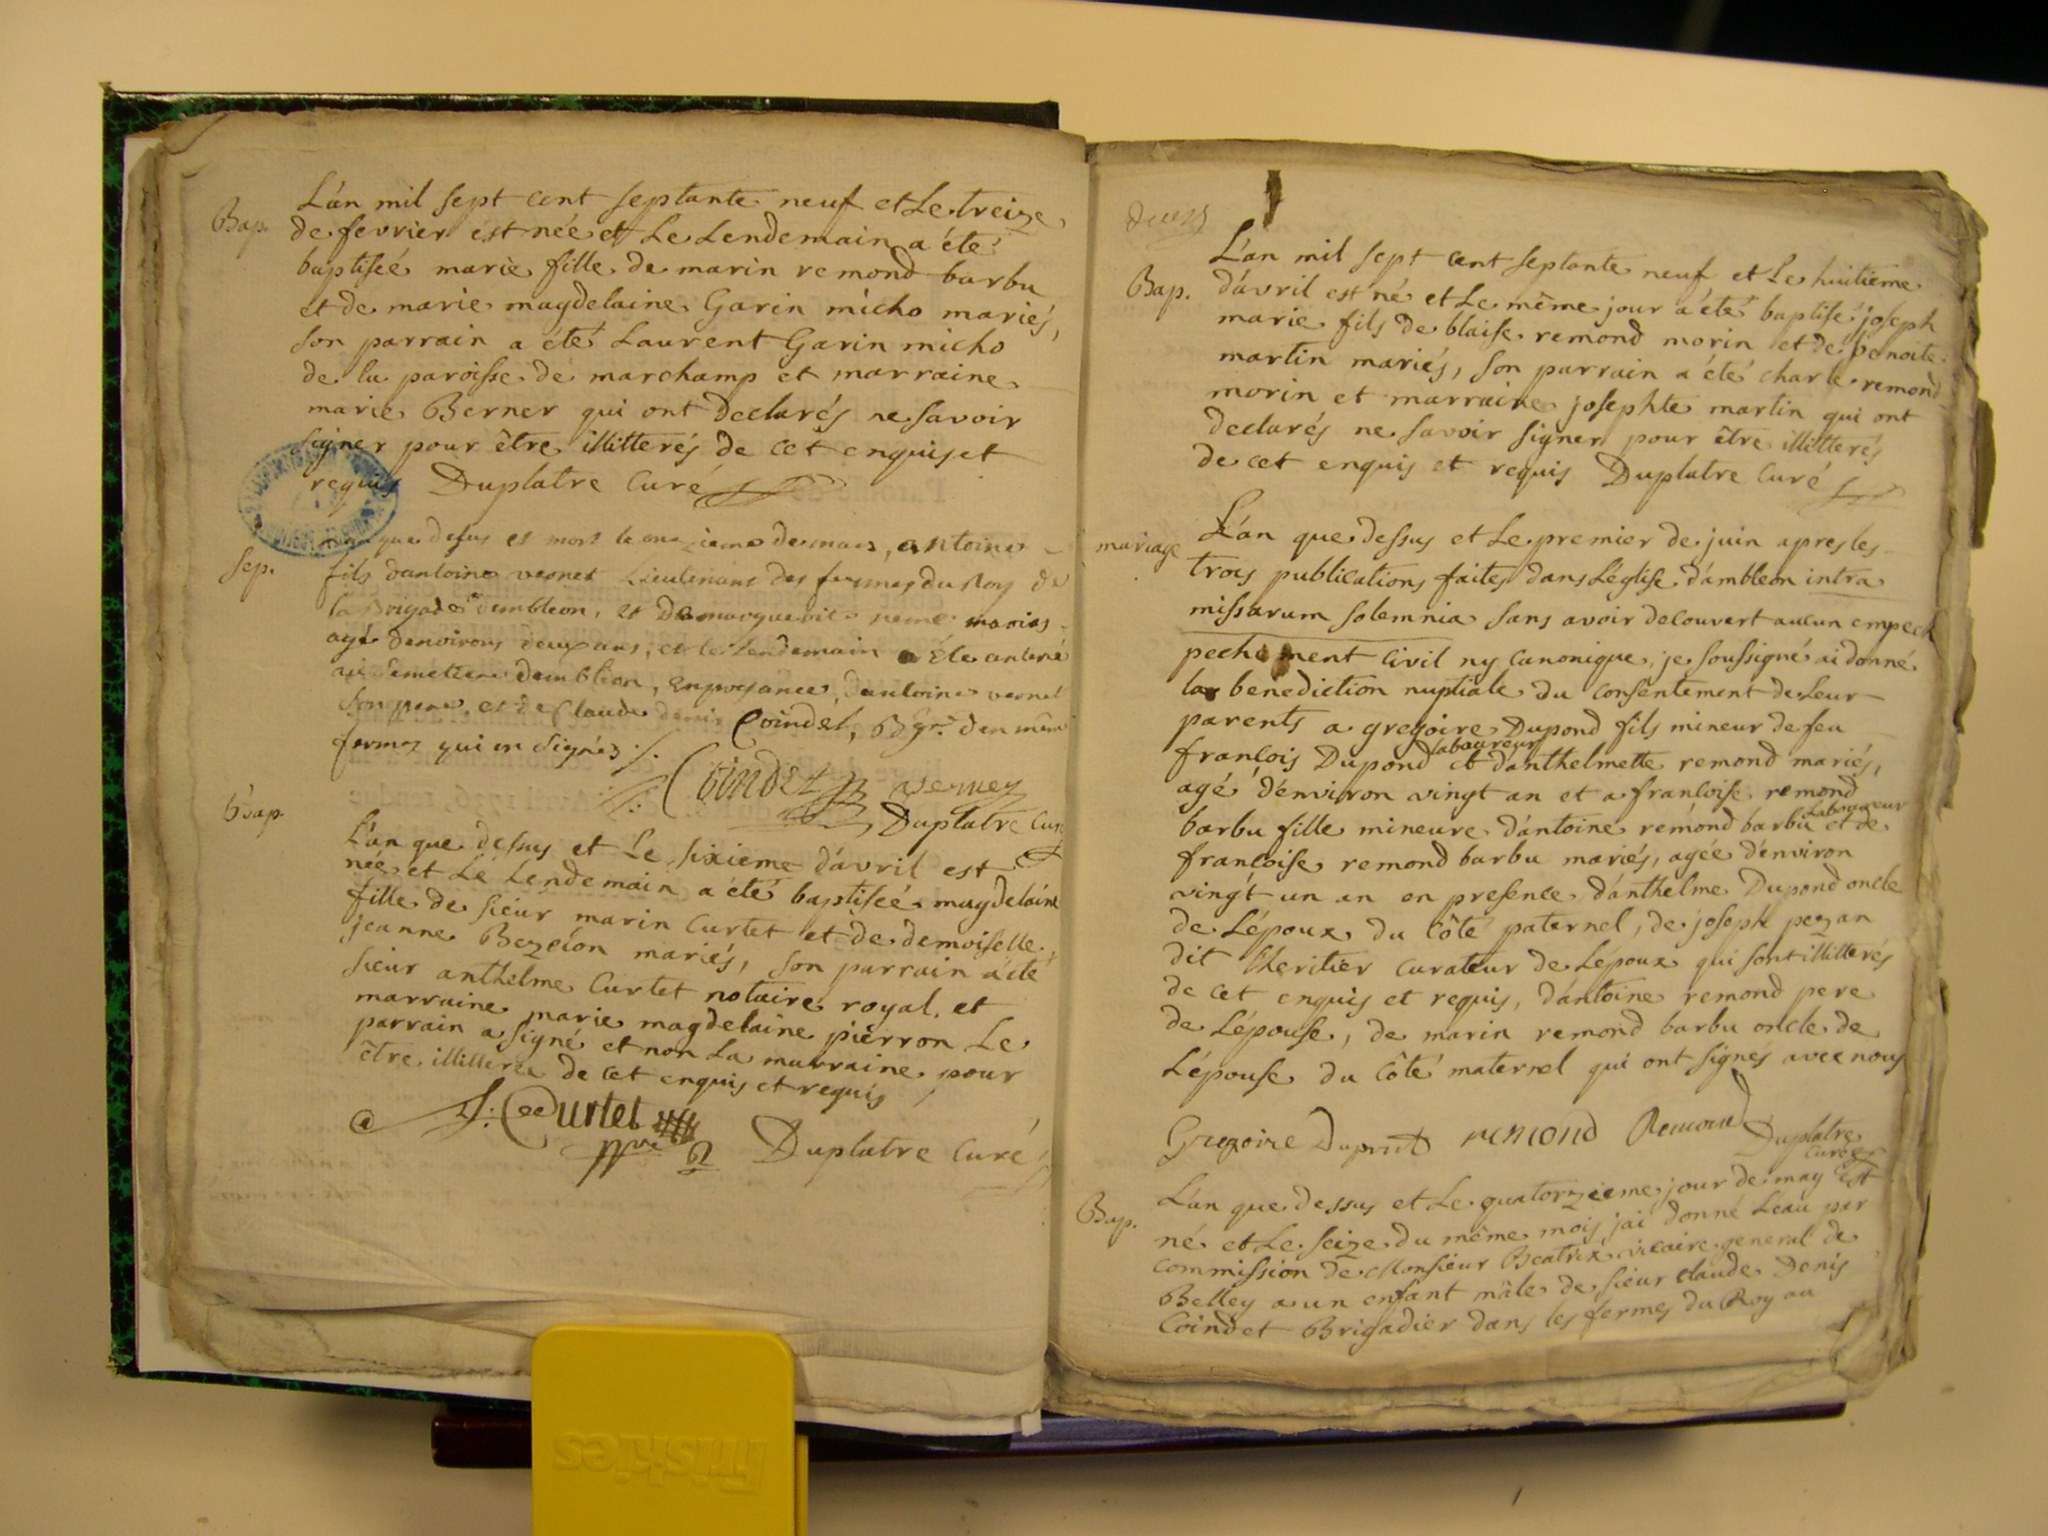 Bap.
L'an mil sept cent septante neuf et Le treize
de fevrier est née et Le Lendemain a été
baptiseé marie fille de marin remond barbu
et de marie magdelaine Garin micho mariés,
son parrain a été Laurent Garin micho
de la paroisse de marchamp et marraine
marie Berner qui ont declarés ne savoir
signer pour être illitterés de cet enquis et
requis Duplatre Curé
Sep.
que desus es mort le onzieme de mars, antoine
fils dantoine vernet Lieutenant des fermes du Roy de
la Brigade dembleon, et de marguerite mariés
agé denvirons deux ans, et le lendemain a éte anterré
au semetiere dembleon, en presance dantoine vernet
son pere, et de Claude denis Coindet, Bgr. den même
fermes qui on signés ./.
Coindet verney
Duplatre Curé
Bap.
L'an que dessus et Le sixieme d'avril est
née et Lé Lendemain a été baptiseé magdelaine
fille de sieur marin Curtet et de demoiselle
jeanne Bezeion mariés, son parrain a été
sieur anthelme Curtet notaire royal, et
marraine marie magdelaine pierron Le
parrain a signé et non La marraine pour
être illitterée de cet enquis et requis
Curtet
Duplatre Curé
L'an mil sept cent septante neuf et Le huitieme
Bap.
d'avril est né et Le même jour a été baptisé joseph
marie fils de blaise remond morin et de benoite
martin mariés, son parrain a été charle remond
morin et marraine josephte martin qui ont
declarés ne savoir signer pour être illitterés
de cet enquis et requis Duplatre Curé
mariage
L'an que dessus et Le premier de juin apres les
trois publications faites dans L'église d'ambleon intra
missarum solemnia sans avoir decouvert aucun empech
pechement Civil ny Canonique, je soussigné ai donné
la benediction nuptiale du consentement de Leur
parents a gregoire Dupond fils mineur de feu
françois Dupond laboureur et d'anthelmette remond mariés,
agé d'environ vingt an et a françoise remond
barbu fille mineure d'antoine remond barbu Laboureur et de
françoise remond barbu mariés, agée d'environ
vingt un an en presence d'anthelme Dupond oncle
de L'époux du côté paternel, de joseph pezan
dit l'heritier curateur de L'époux qui sont illitterés
de cet enquis et requis, d'antoine remond pere
de L'épouse, de marin remond barbu oncle de
L'épouse du côté maternel qui ont signés avec nous
Gregoire Dupont remond Remond Duplatre
Curé
Bap.
L'an que dessus et Le quatorzieme jour de may est
né et Le seize du même mois jai donné L'eau par
commission de Monsieur Beatrix vicaire general de
Belley a un enfant mâle de sieur claude Denis
Coindet Brigadier dans les fermes du Roy au
Friskies